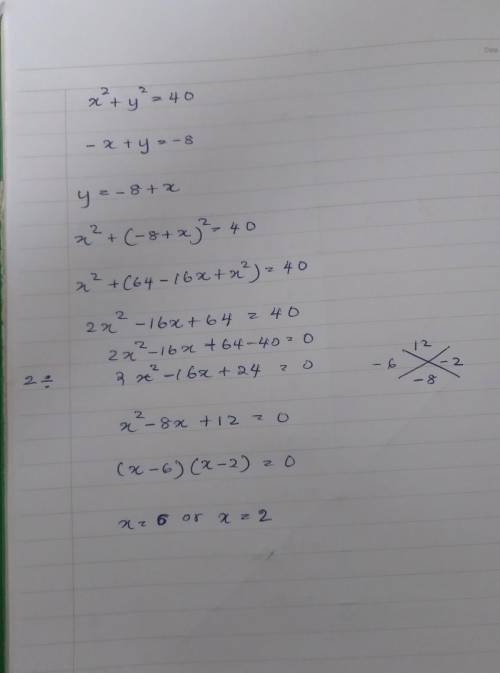 x² + y² = 40
- x + y = -8
y = -8 + x
x² + (-8 + x)² = 40
x² + (64 - 16x + x²) = 40
2x² - 16x + 64 = 40
2x² - 16x + 64 - 40 = 0
2 ÷ 2x² - 16x + 24 = 0
12
-6 -2
-8
x² - 8x + 12 = 0
(x - 6) (x - 2) = 0
x = 6 or x = 2